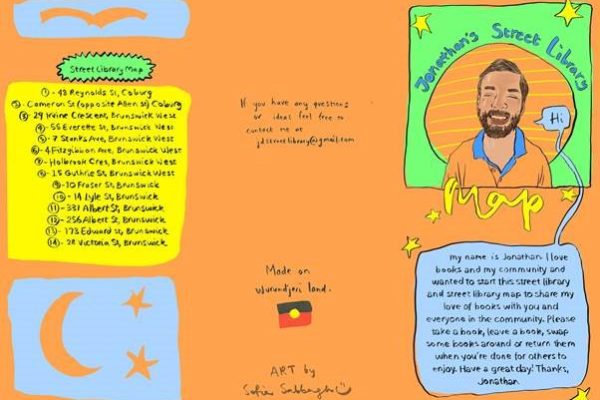 Street Library Map
1 - 48 Reynolds St, Coburg
2 - Cameron St (opposite Allen St) Coburg
3 - 29 Irvine Crescent, Brunswick West
4 - 55 Everett St, Brunswick West
5 - 7 Stanks Ave, Brunswick West
6 - 4 Fitzgibbon Ave, Brunswick West
7 - Holbrook Cres, Brunswick West
8 - 15 Guthrie St, Brunswick West
9 - 10 Fraser St, Brunswick
10 - 14 Lyle St, Brunswick
11 - 331 Albert St, Brunswick
12 - 256 Albert St, Brunswick
13 - 173 Edward St, Brunswick
14 - 28 Victoria St, Brunswick
If you have any questions
or ideas feel free to
contact me at
jdstreetlibrary@gmail.com
Made on
Wurundjeri land.
ART by
Sofia Sabbagh
Jonathan's Street Library
Hi
Map
my name is Jonathan. I love
books and my community and
wanted to start this street library
and street library map to share my
love of books with you and
everyone in the community. Please
take a book, leave a book, swap
some books around or return them
when you're done for others to
enjoy. Have a great day! Thanks,
Jonathan.